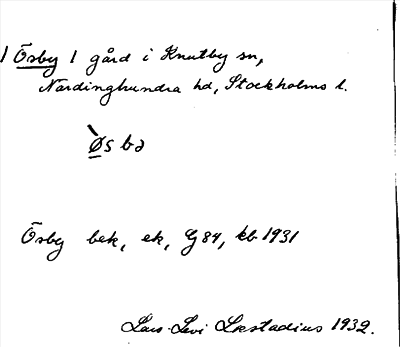 1 Ösby 1 gård i Knutby sn,
Närdinghundra hd, Stockholms l.
Ø̀sbə
Ösby bek, ek, G 84, kb 1931
Lars-Levi Læstadius 1932.